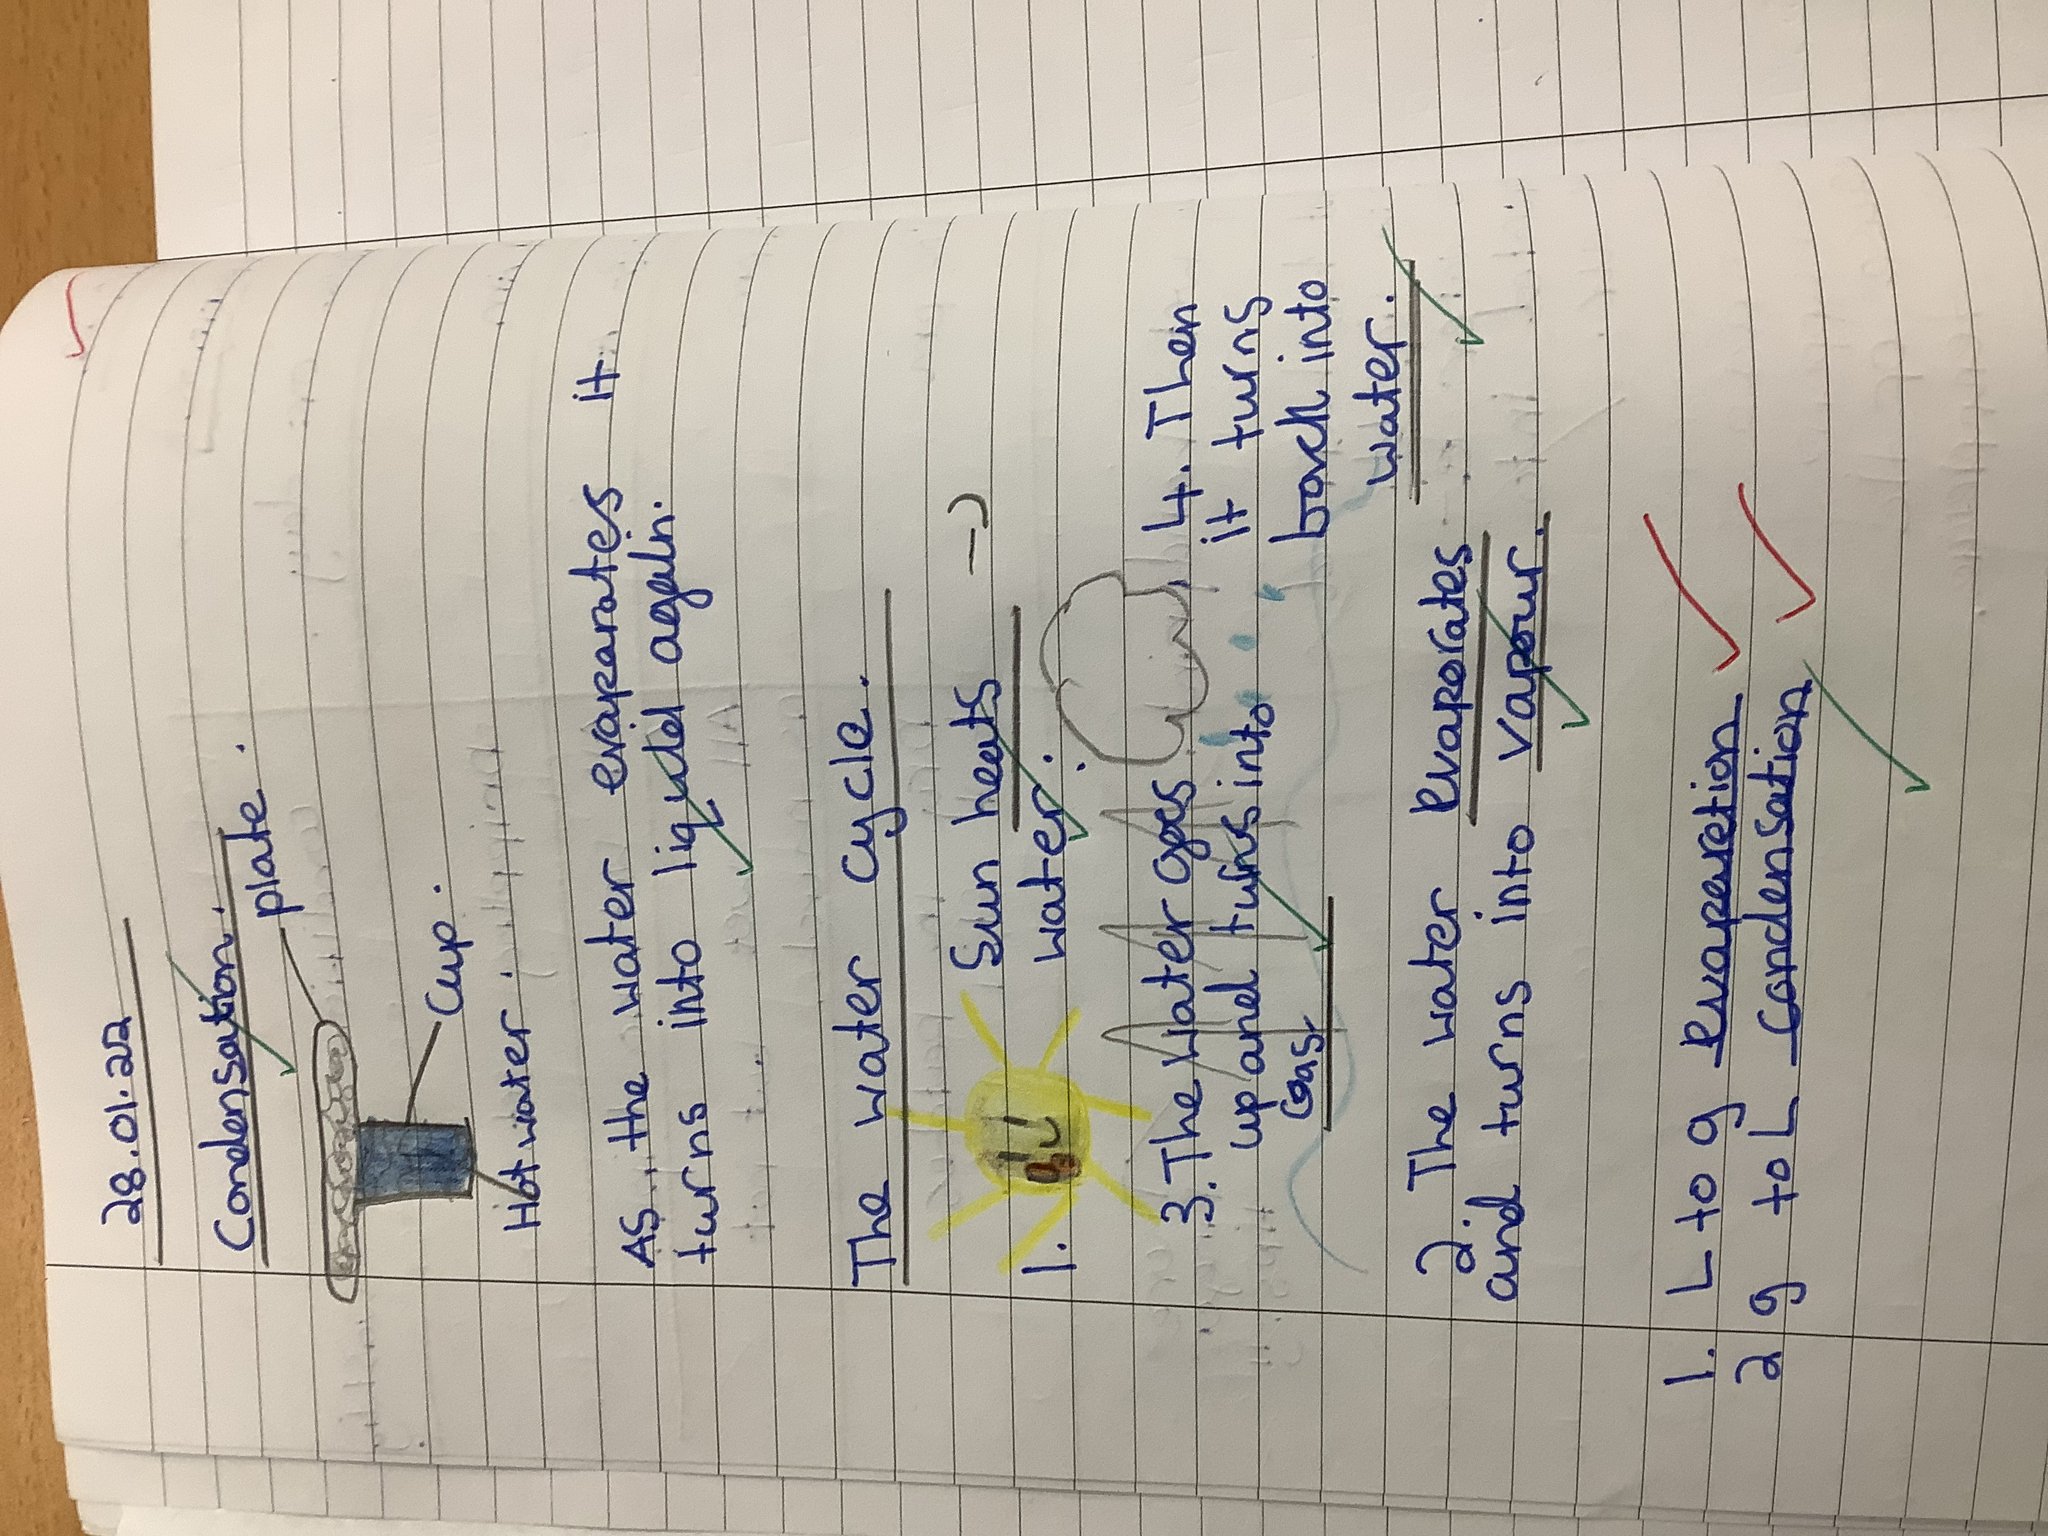 28.01.22
Condensation.
plate.
Cup.
Hot water.
As the water evaparates it
turns into liquid again.
The water cycle.
1.
Sun heats
water.
3. The water goes
up and turns into
Gas.
4. Then
it turns
back into
water.
2. The water evaporates
and turns into vapour.
1. L to g evaparetion
2 g to L Condensation